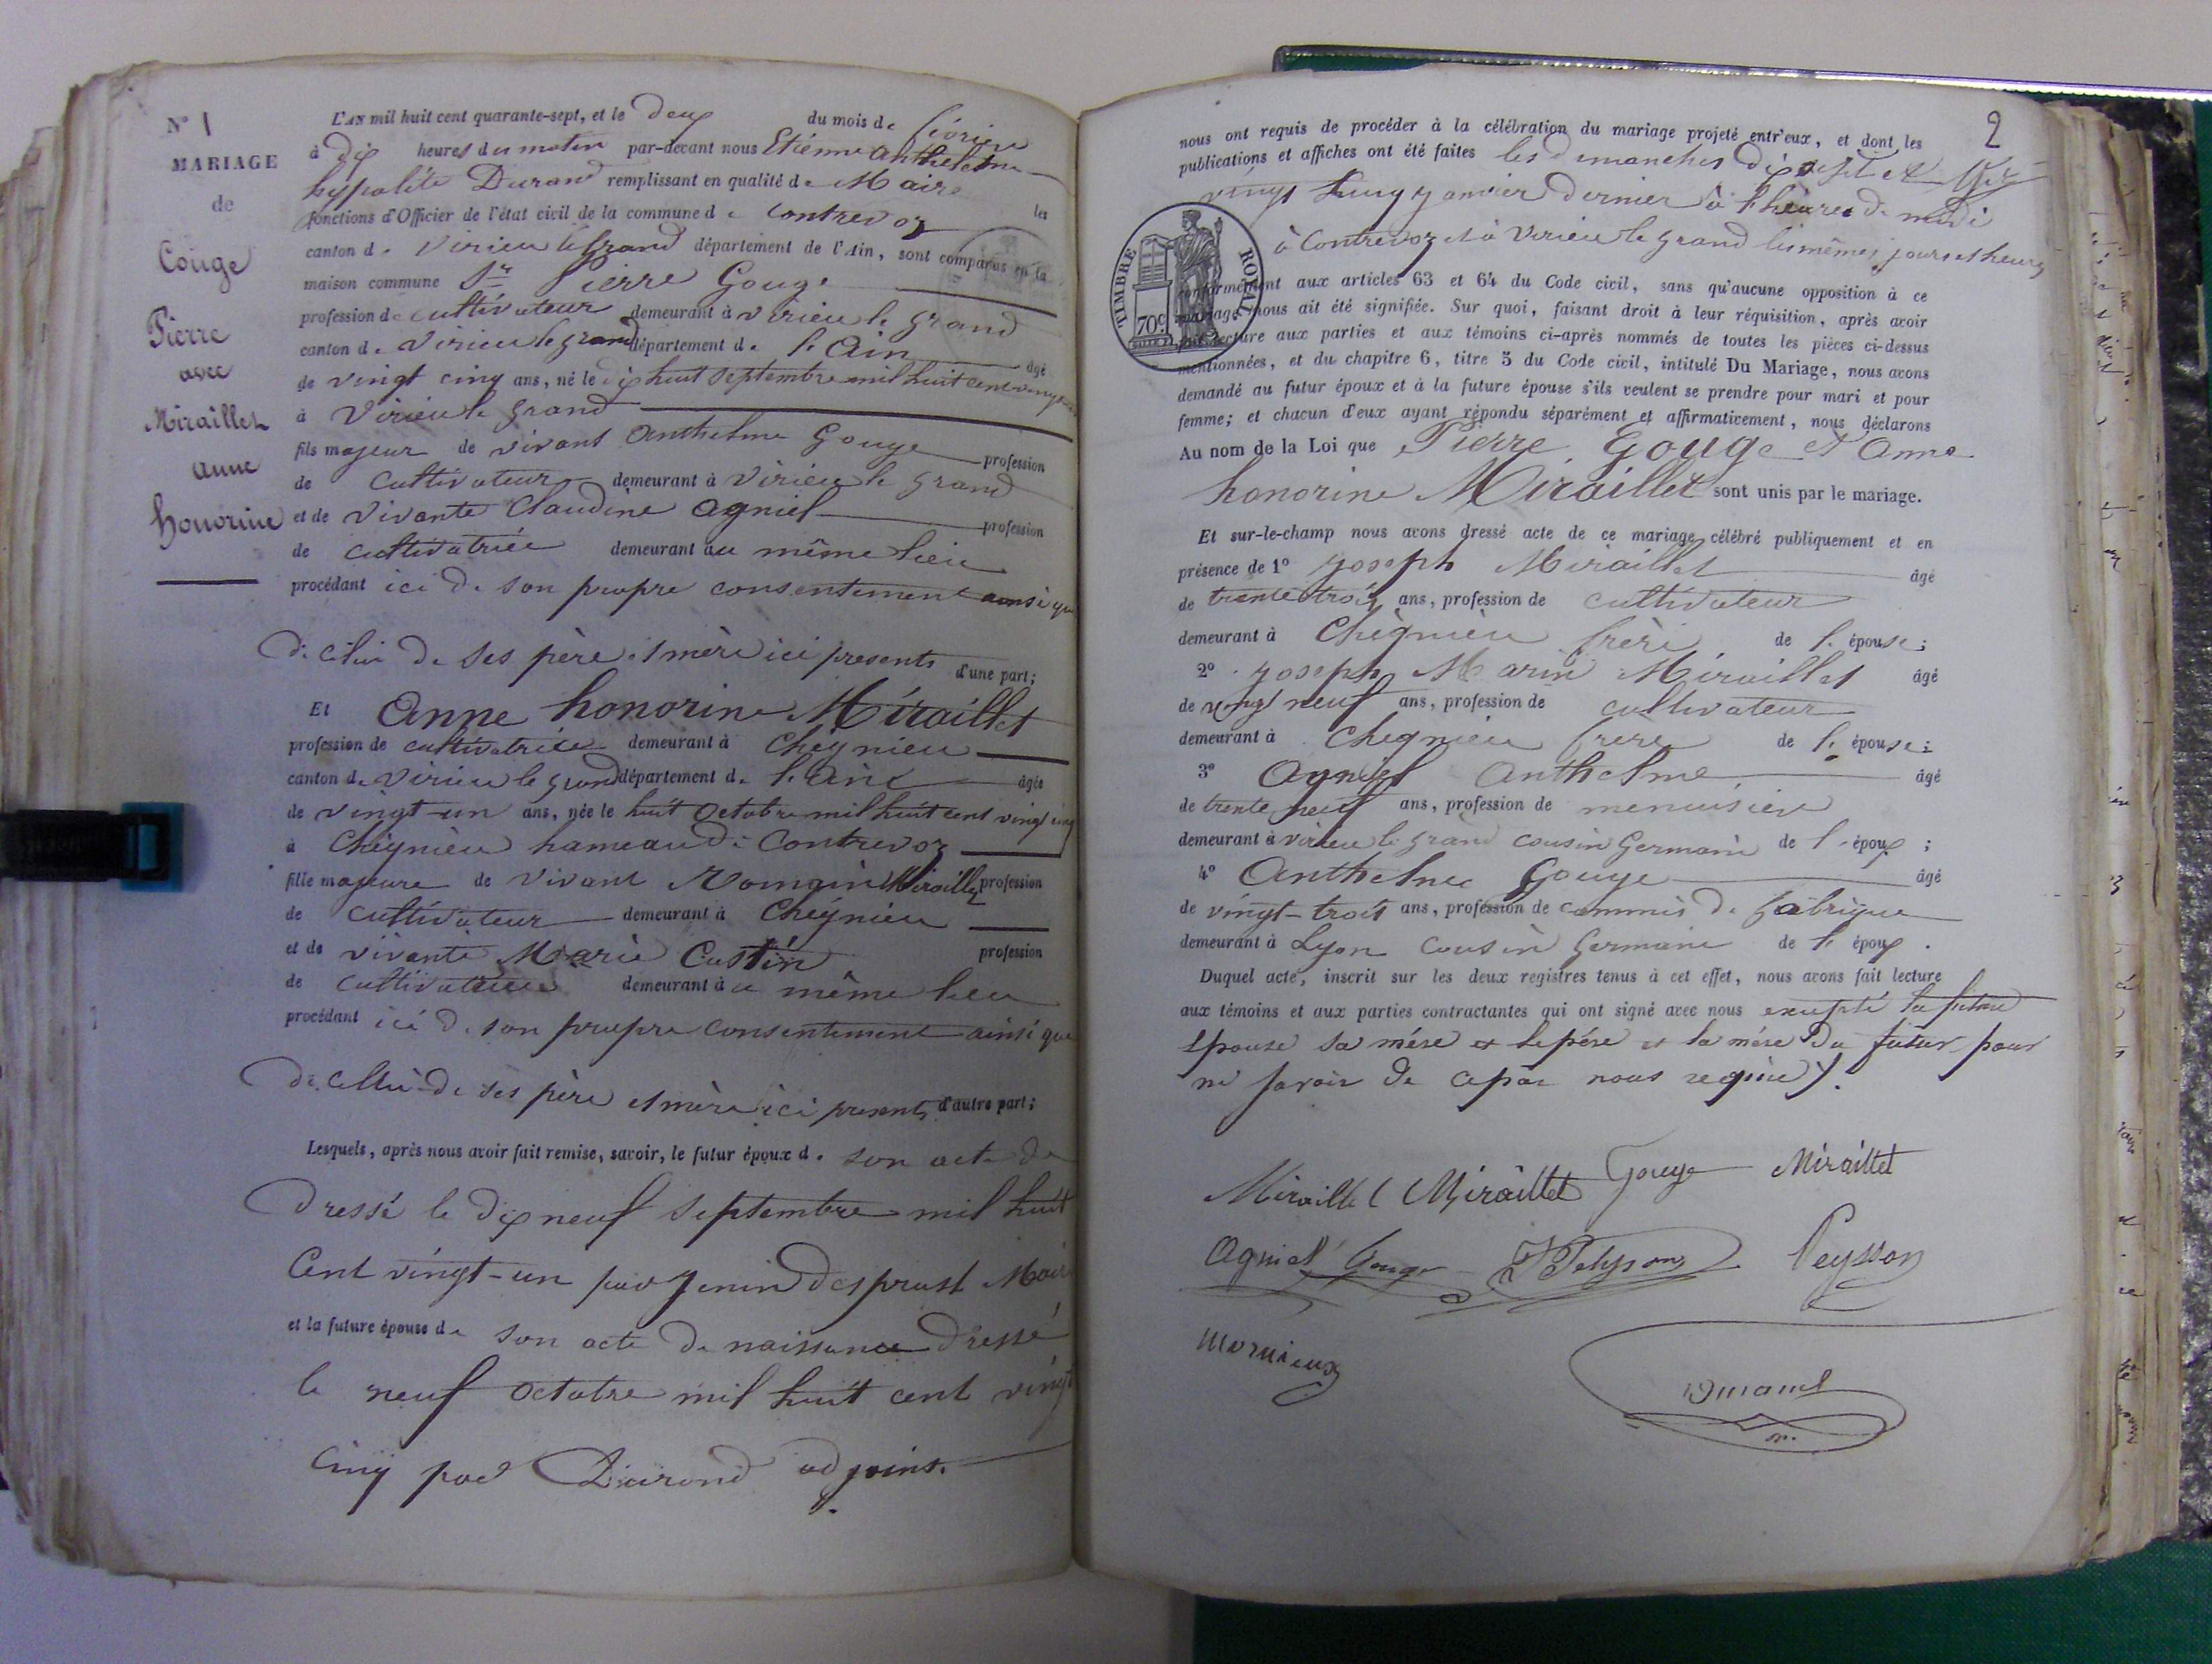 N° 1
MARIAGE
de
Gouge
Pierre
avec
Miraillet
anne
honorine
L'AN mil huit cent quarante-sept, et le deux du mois de février
à dix heures du matin par-devant nous Etienne anthelme
hypolite Durand remplissant en qualité de Maire les
fonctions d'Officier de l'état civil de la commune de Contrevoz
canton de Virieu le grand département de l'Ain, sont comparus en la
maison commune Sr Pierre Gouge
profession de cultivateur demeurant à virieu le grand
canton de Virieu le grand département de l'Ain âgé
de vingt cinq ans, né le dix huit septembre mil huit cent vingt
à Virieu le grand
fils majeur de vivant anthelme Gouge profession
de cultivateur demeurant à Virieu le grand
et de vivante Claudine agniel profession
de cultivatrice demeurant au même lieu
procédant ici de son propre consentement ainsi que
de celui de ses père et mère ici presents d'une part;
Et anne honorine Miraillet
profession de cultivatrice demeurant à Cheignieu
canton de Virieu le grand département de l'ain âgée
de vingt-un ans, née le huit octobre mil huit cent vingt cinq
à Cheignieu hameau de Contrevoz
fille majeure de vivant Romain Miraillet profession
de cultivateur demeurant à Cheignieu
et de vivante Marie Custin profession
de cultivatrice demeurant à u même lieu
procédant ici de son propre consentement ainsi que
de celui de ses père et mère ici presents d'autre part;
Lesquels, après nous avoir fait remise, savoir, le futur époux de son acte de
dressé le dix neuf septembre mil huit
Cent vingt-un par Jenin desprust Maire
et la future épouse de son acte de naissance dressé
le neuf octobre mil huit cent vingt
cinq par Durand adjoint.
2
nous ont requis de procéder à la célébration du mariage projeté entr'eux, et dont les
publications et affiches ont été faites les dimanches dix sept et
vingt janvier dernier à l'heure de midi
à Contrevoz et à Virieu le grand les mêmes jours et heures
TIMBRE ROYAL
70c
conformément aux articles 63 et 64 du Code civil, sans qu'aucune opposition à ce
mariage nous ait été signifiée. Sur quoi, faisant droit à leur réquisition, après avoir
fait lecture aux parties et aux témoins ci-après nommés de toutes les pièces ci-dessus
mentionnées, et du chapitre 6, titre 5 du Code civil, intitulé Du Mariage, nous avons
demandé au futur époux et à la future épouse s'ils veulent se prendre pour mari et pour
femme; et chacun d'eux ayant répondu séparément et affirmativement, nous déclarons
Au nom de la Loi que Pierre Gouge et Anne
honorine Miraillet sont unis par le mariage.
Et sur-le-champ nous avons dressé acte de ce mariage célébré publiquement et en
présence de 1° joseph Miraillet âgé
de trente trois ans, profession de cultivateur
demeurant à Cheignieu frère de l'épouse;
2° joseph Marin Miraillet âgé
de vingt neuf ans, profession de cultivateur
demeurant à Cheignieu frère de l'épouse;
3° Agniel Anthelme âgé
de trente neuf ans, profession de menuisier
demeurant à virieu le grand cousin Germain de l'époux;
4° Anthelme Gouge âgé
de vingt-trois ans, profession de commis de fabrique
demeurant à Lyon cousin Germain de l'époux.
Duquel acte, inscrit sur les deux registres tenus à cet effet, nous avons fait lecture
aux témoins et aux parties contractantes qui ont signé avec nous excepté la future
épouse sa mère et le père et la mère du futur pour
ne savoir de ce par nous requis.
Miraillet Miraillet Gouge Miraillet
Agniel Gouge Peysson Peysson
Mornieux
Durand